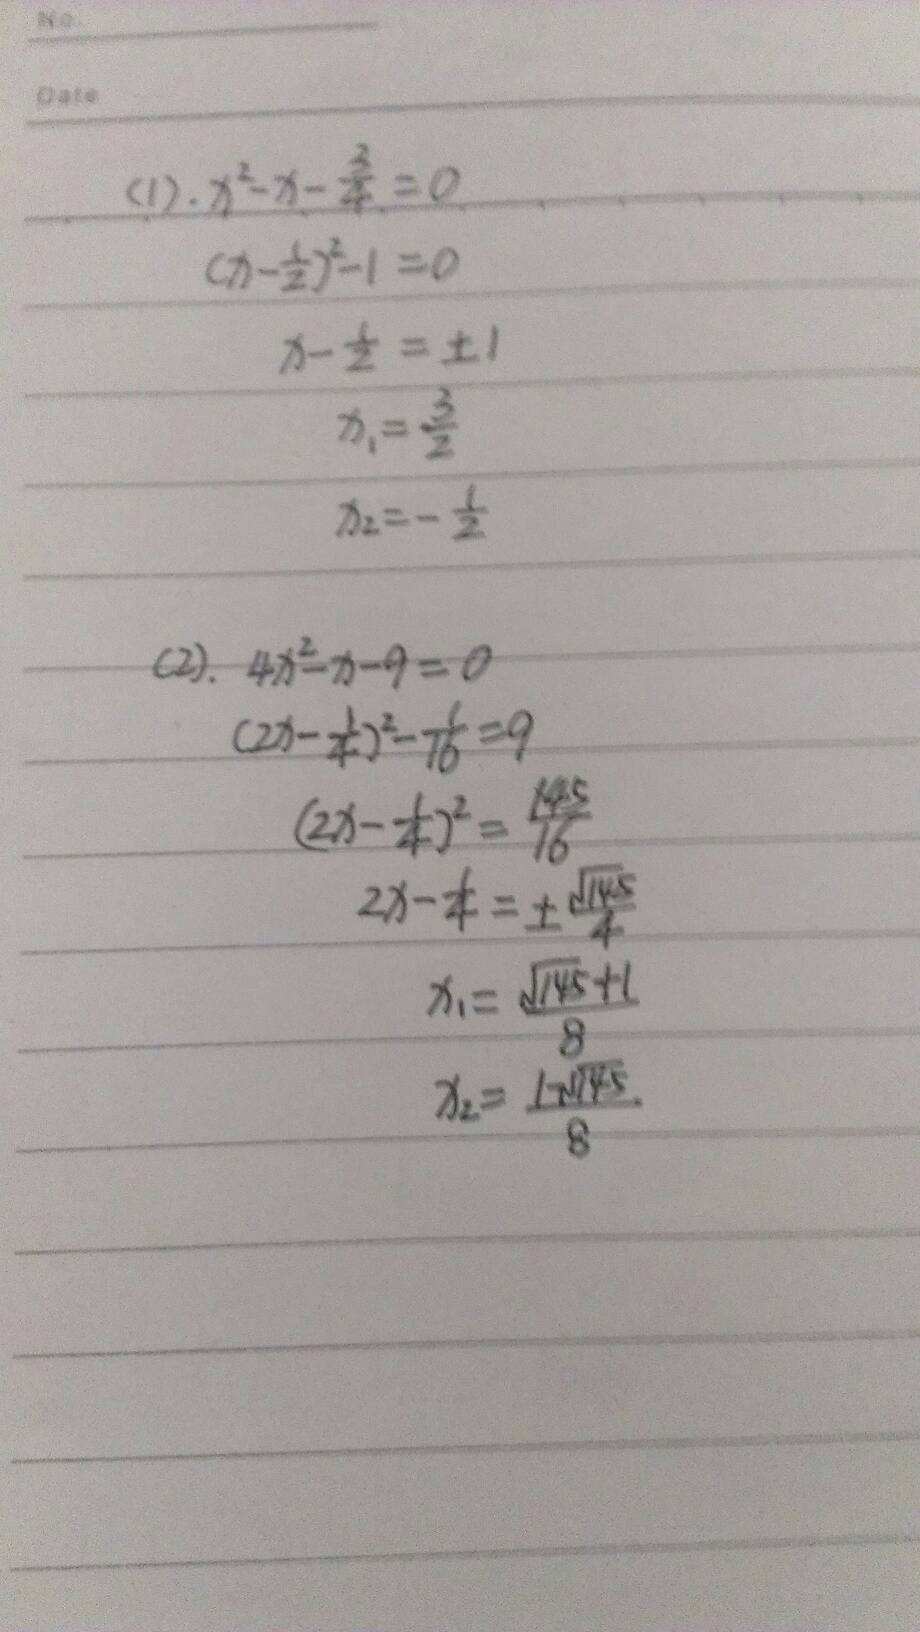 No.
Date
(1). x²-x-3/4=0
(x-1/2)²-1=0
x-1/2=±1
x₁=3/2
x₂=-1/2
(2). 4x²-x-9=0
(2x-1/4)²-1/16=9
(2x-1/4)²=145/16
2x-1/4=±√145/4
x₁=(√145+1)/8
x₂=(1-√145)/8.